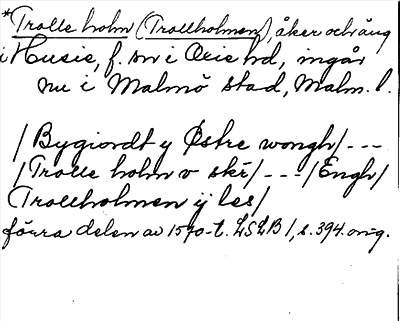 *Trolle holm (Trollholmen), åker och äng
i Husie, f. sn i Oxie hd, ingår
nu i Malmö stad, Malm. l.
/Bygiordt y Østre wongh/ - - -
/Trolle holm v skr/ - - - /Engh/
Trollholmen ÿ les/
förra delen av 1570-t. LSLB 1, s. 394. orig.